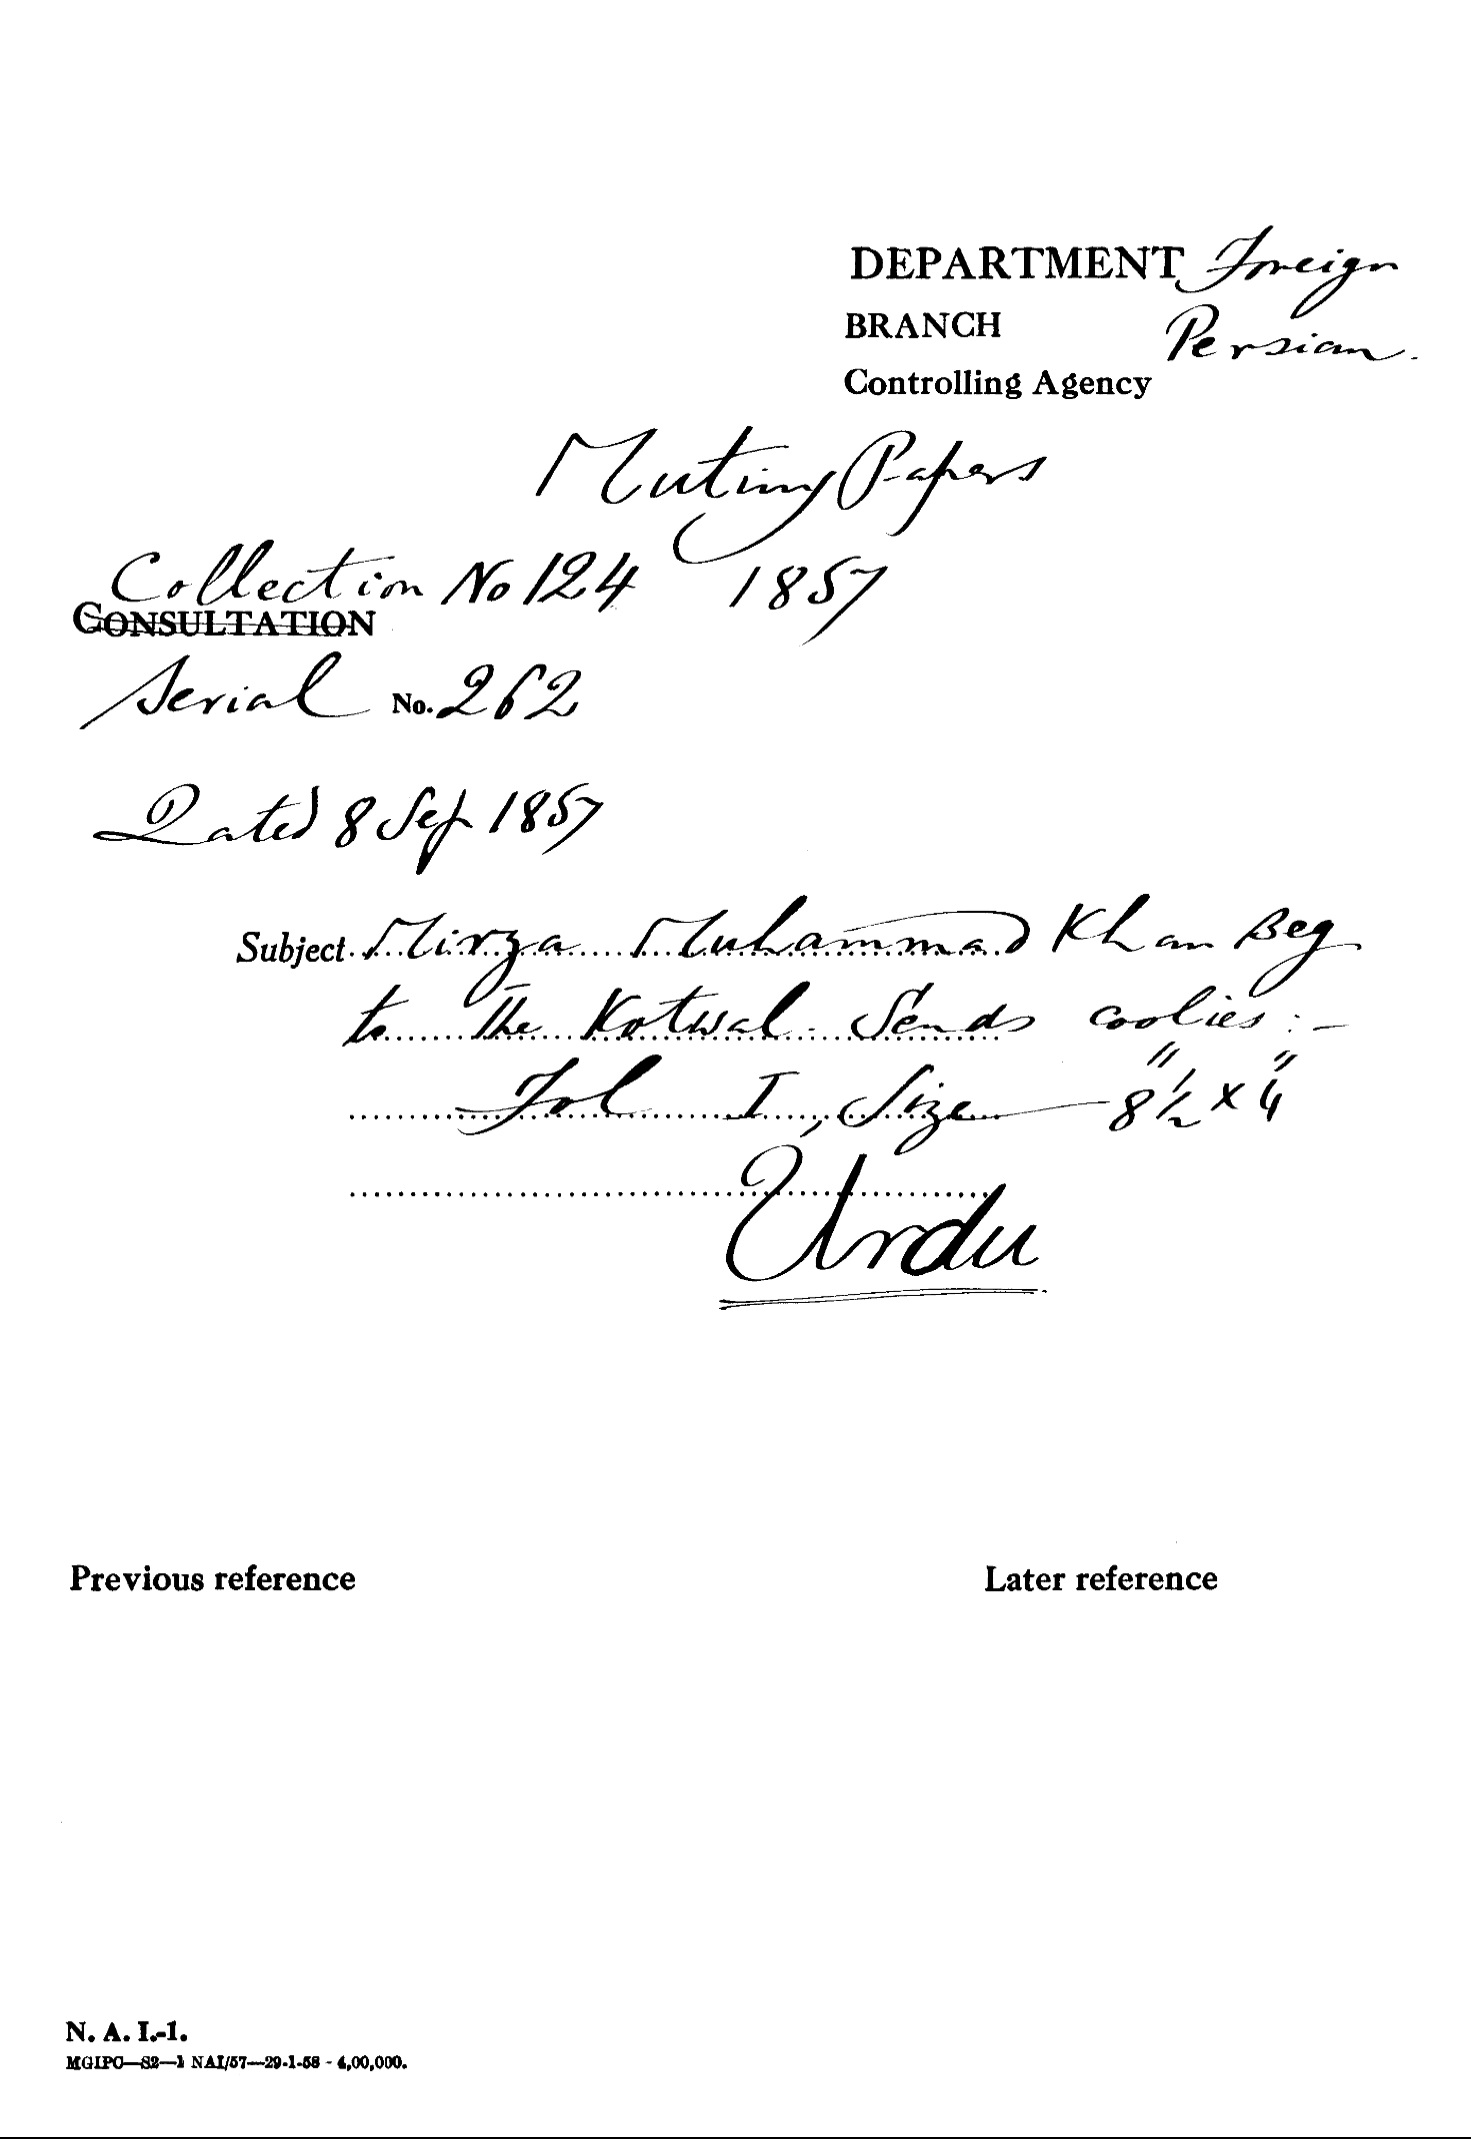 DEPARTMENT Foreign
BRANCH Persian.
Controlling Agency
Mutiny Papers
Collection No 124 1857
CONSULTATION
Serial No. 262
Dated 8 Sep 1857
Subject Mirza Muhammad Khan Beg
to the Kotwal. Sends coolies :-
Fol I, Size — 8½" x 4"
Urdu
Previous reference
Later reference
N. A. I.-1.
MGIPC—S2—1 NAI/57—29-1-58 - 4,00,000.